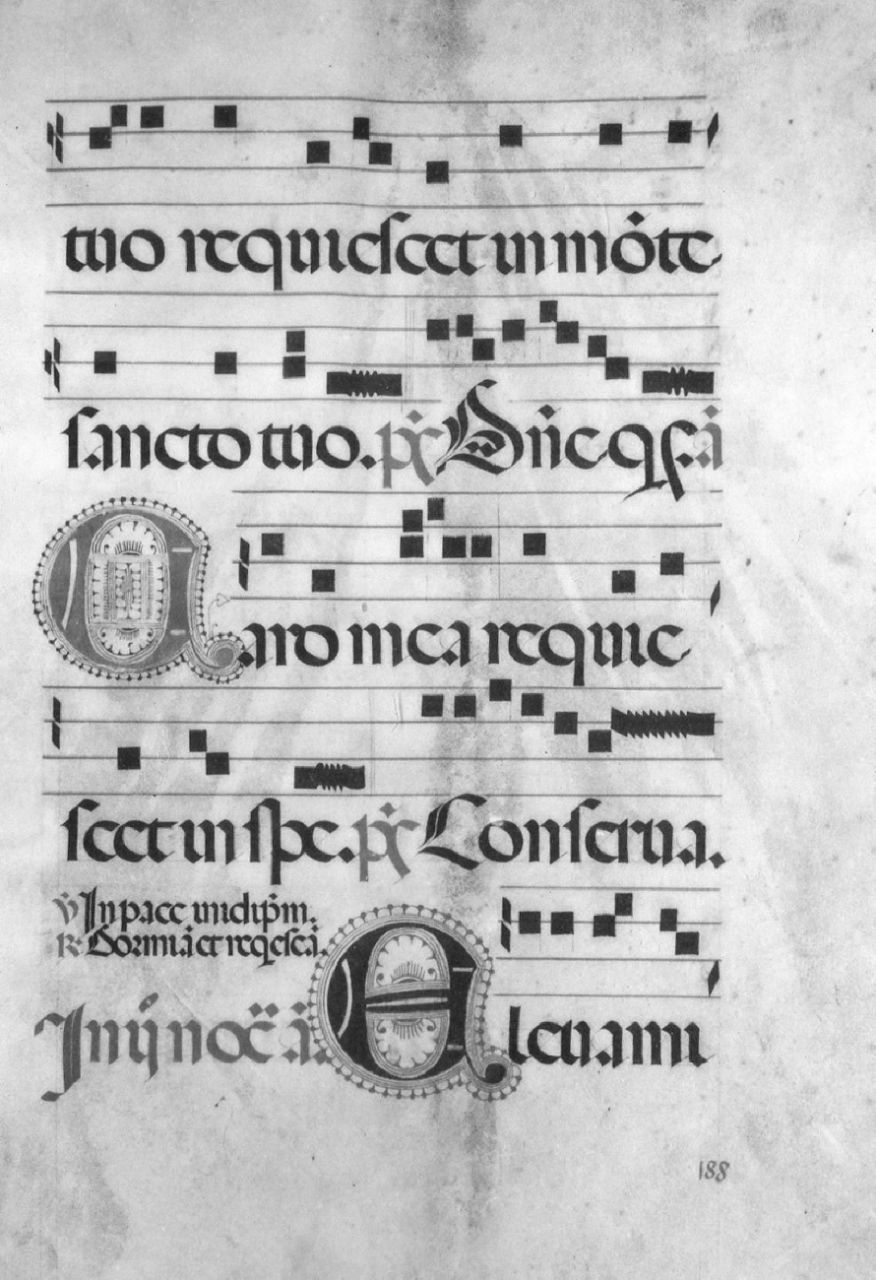 tuo requiescet in mōte
sancto tuo. ps̄ Dn̄e qs. ā
Caro mea requie
scet in spe. ps̄ Conserua.
℣ In pace in idip̄m.
℟ Dormiā et reqescā.
In ij noc̄. ā. Eleuami
188